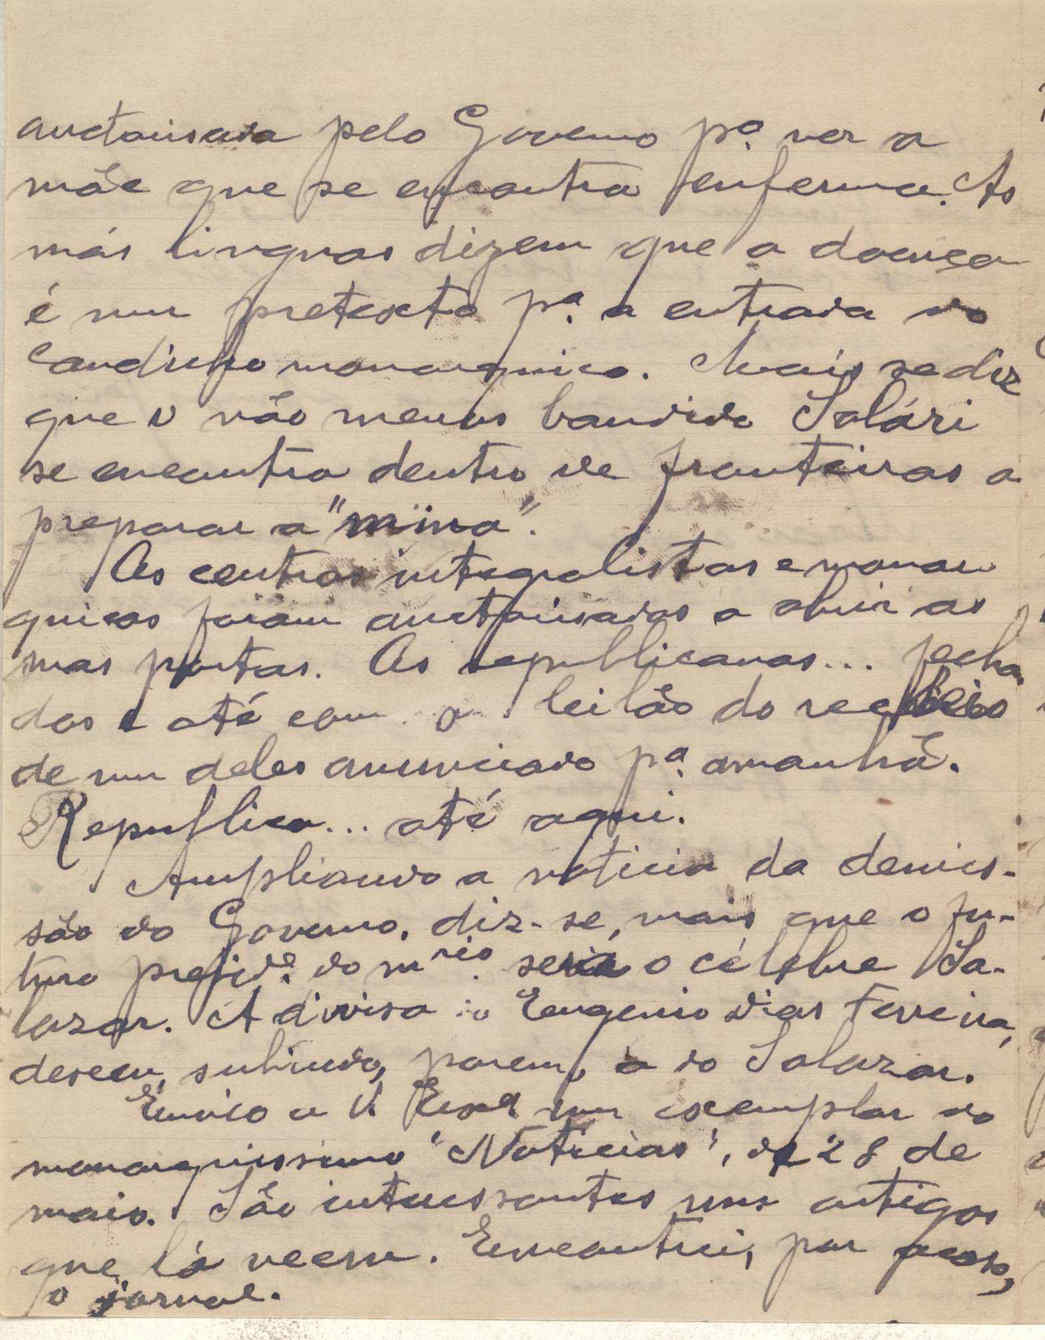 auctorisada pelo Governo pª. ver a
mãe que se encontra enferma. As
más linguas dizem que a doença
é um pretexto pª. a entrada do
caudilho monarquico. Mais se diz
que o não menos bandido Solári
se encontra dentro de fronteiras a
preparar a "mina".
Os centros integralistas e monar
quicos foram auctorisados a abrir as
suas portas. Os republicanos... fecha
dos e até com o leilão do recheio
de um deles anunciado pª. amanhã.
Republica... até aqui.
Ampliando a noticia da demis-
são do Governo, diz-se, mais que o fu-
turo presidᵉ. do mʳⁱᵒ. será o célebre Sa-
lazar. A divisa do Eugenio Dias Ferreira,
desceu, subindo, porem, a do Salazar.
Envio a V. Exª um exemplar do
monarquissimo "Noticias", de 28 de
maio. São interessantes uns artigos
que lá veem. Encontrei, por acaso,
o jornal.